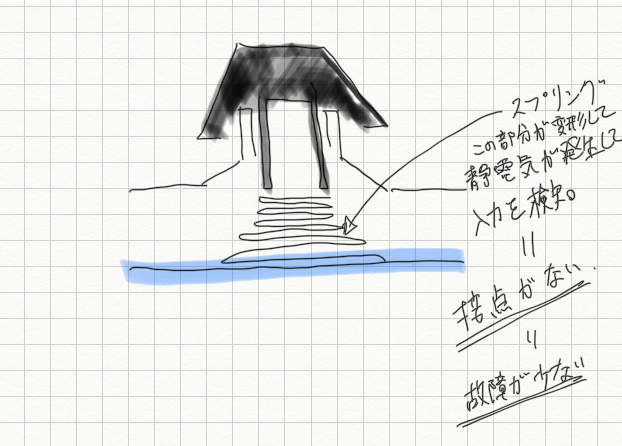 スプリング
この部分が変形して
静電気が発生して
入力を検知。
||
接点がない.
||
故障が少ない